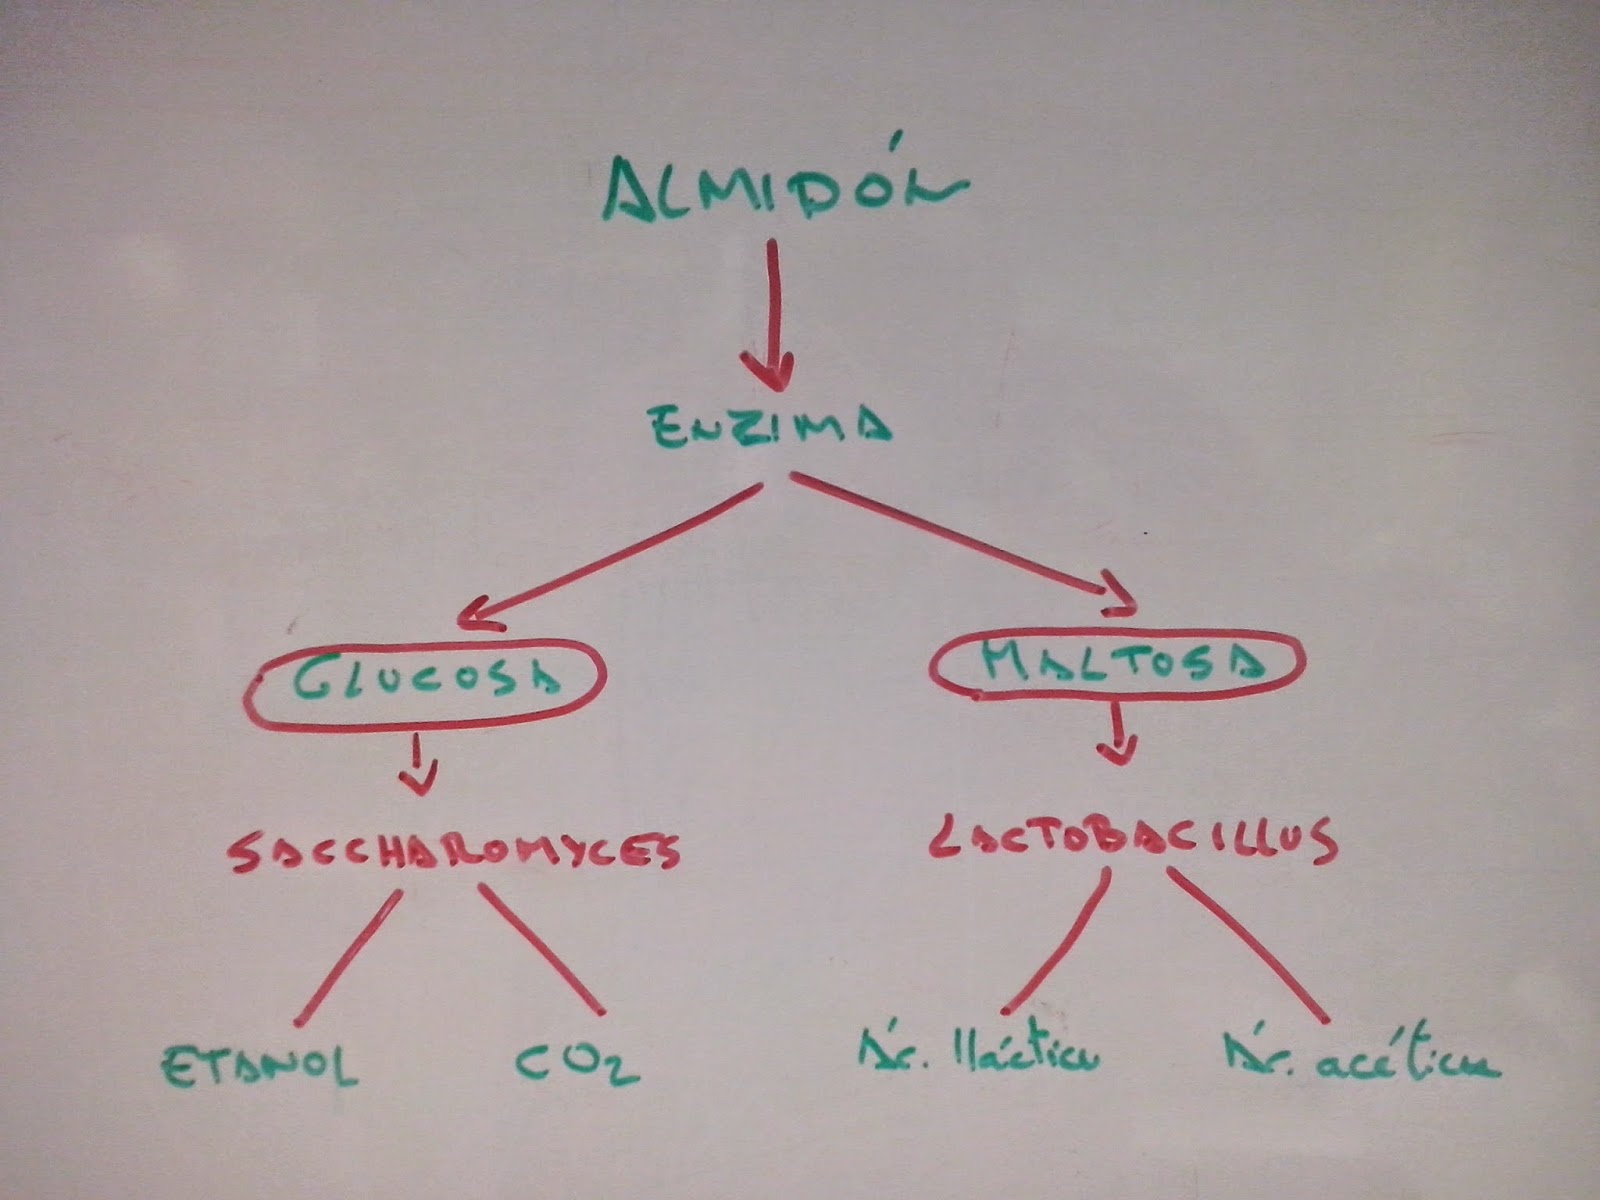 ALMIDÓN
ENZIMA
GLUCOSA MALTOSA
SACCHAROMYCES LACTOBACILLUS
ETANOL CO2 Ác. lláctico Ác. acético